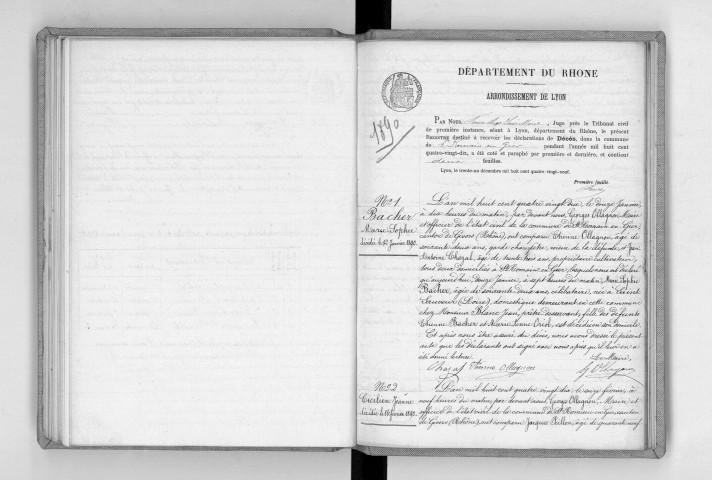 DÉPARTEMENT DU RHONE
ARRONDISSEMENT DE LYON
1890
PAR NOUS, Juge près le Tribunal civil
de première instance, séant à Lyon, département du Rhône, le présent
REGISTRE destiné à recevoir les déclarations de Décès, dans la commune
de St Romain en Gier pendant l'année mil huit cent
quatre-vingt-dix, a été coté et paraphé par première et dernière, et contient
feuilles.
Lyon, le trente-un décembre mil huit cent quatre-vingt-neuf.
Première feuille
No 1
Bacher
Marie Sophie
décédée le 12 Janvier 1890.
L'an mil huit cent quatre vingt dix, le douze Janvier,
à dix heures du matin, par devant nous, George Ollagnon, Maire
et officier de l'état civil de la commune de St Romain en Gier,
canton de Givors (Rhône), ont comparu Etienne Ollagnon, âgé de
soixante deux ans, garde champêtre, voisin de la défunte, et Jean
Antoine Chazal, âgé de trente trois ans, propriétaire cultivateur,
tous deux domiciliés à St Romain en Gier, lesquels nous ont déclaré
qu'aujourd'hui, douze Janvier, à sept heures du matin, Marie Sophie
Bacher, âgée de soixante deux ans, célibataire, née à Saint
Sauveur (Loire), domestique demeurant en cette commune
chez Monsieur Blanc Jean, prêtre desservant, fille des défunts
Etienne Bacher et Marie Jeanne Oriol, est décédée en son domicile.
Et après nous être assuré du décès, nous avons dressé le présent
acte que les déclarants ont signé avec nous après qu'il leur en a
été donné lecture.
Le Maire,
Chazal Etienne Ollagnon
No 2
Jeanne
décédée le 16 février 1890.
L'an mil huit cent quatre vingt dix, le seize février, à
neuf heures du matin, par devant nous, George Ollagnon, Maire et
officier de l'état civil de la commune de St Romain en Gier, canton
de Givors (Rhône), ont comparu Jacques Peillon, âgé de quarante neuf